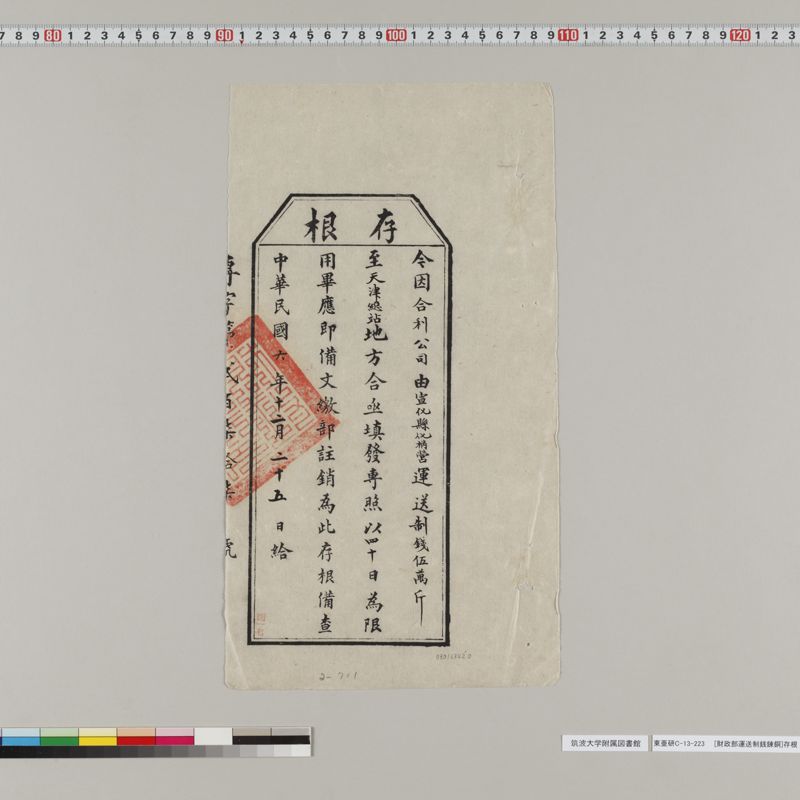 7 8 9 80 1 2 3 4 5 6 7 8 9 90 1 2 3 4 5 6 7 8 9 100 1 2 3 4 5 6 7 8 9 110 1 2 3 4 5 6 7 8 9 120 1 2 3
存根
令因合利公司由宣化縣運送制錢伍萬斤
至天津總站地方合亟填發專照以四十日為限
用畢應即備文繳部註銷為此存根備查
中華民國六年十二月二十五日給
專字第貳百柒拾柒號
2-711
筑波大学附属図書館
東亜研C-13-223 [財政部運送制銭錬銅]存根